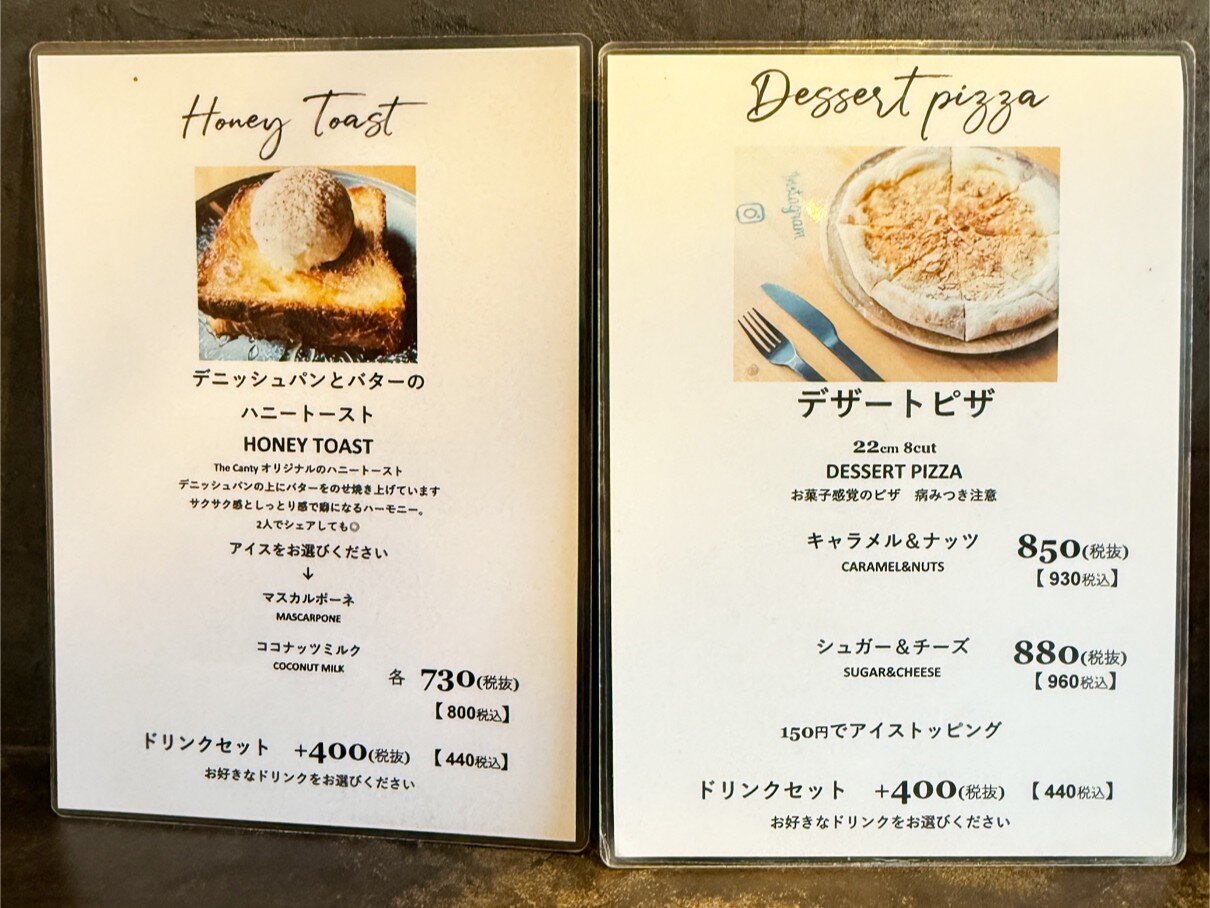 Honey Toast
デニッシュパンとバターの
ハニートースト
HONEY TOAST
The Canty オリジナルのハニートースト
デニッシュパンの上にバターをのせ焼き上げています
サクサク感としっとり感で癖になるハーモニー。
2人でシェアしても◎
アイスをお選びください
↓
マスカルポーネ
MASCARPONE
ココナッツミルク
COCONUT MILK
各 730(税抜)
【800税込】
ドリンクセット +400(税抜) 【440税込】
お好きなドリンクをお選びください
Dessert pizza
Instagram
デザートピザ
22cm 8cut
DESSERT PIZZA
お菓子感覚のピザ 病みつき注意
キャラメル＆ナッツ 850(税抜)
CARAMEL&NUTS 【930税込】
シュガー＆チーズ 880(税抜)
SUGAR&CHEESE 【960税込】
150円でアイストッピング
ドリンクセット +400(税抜) 【440税込】
お好きなドリンクをお選びください